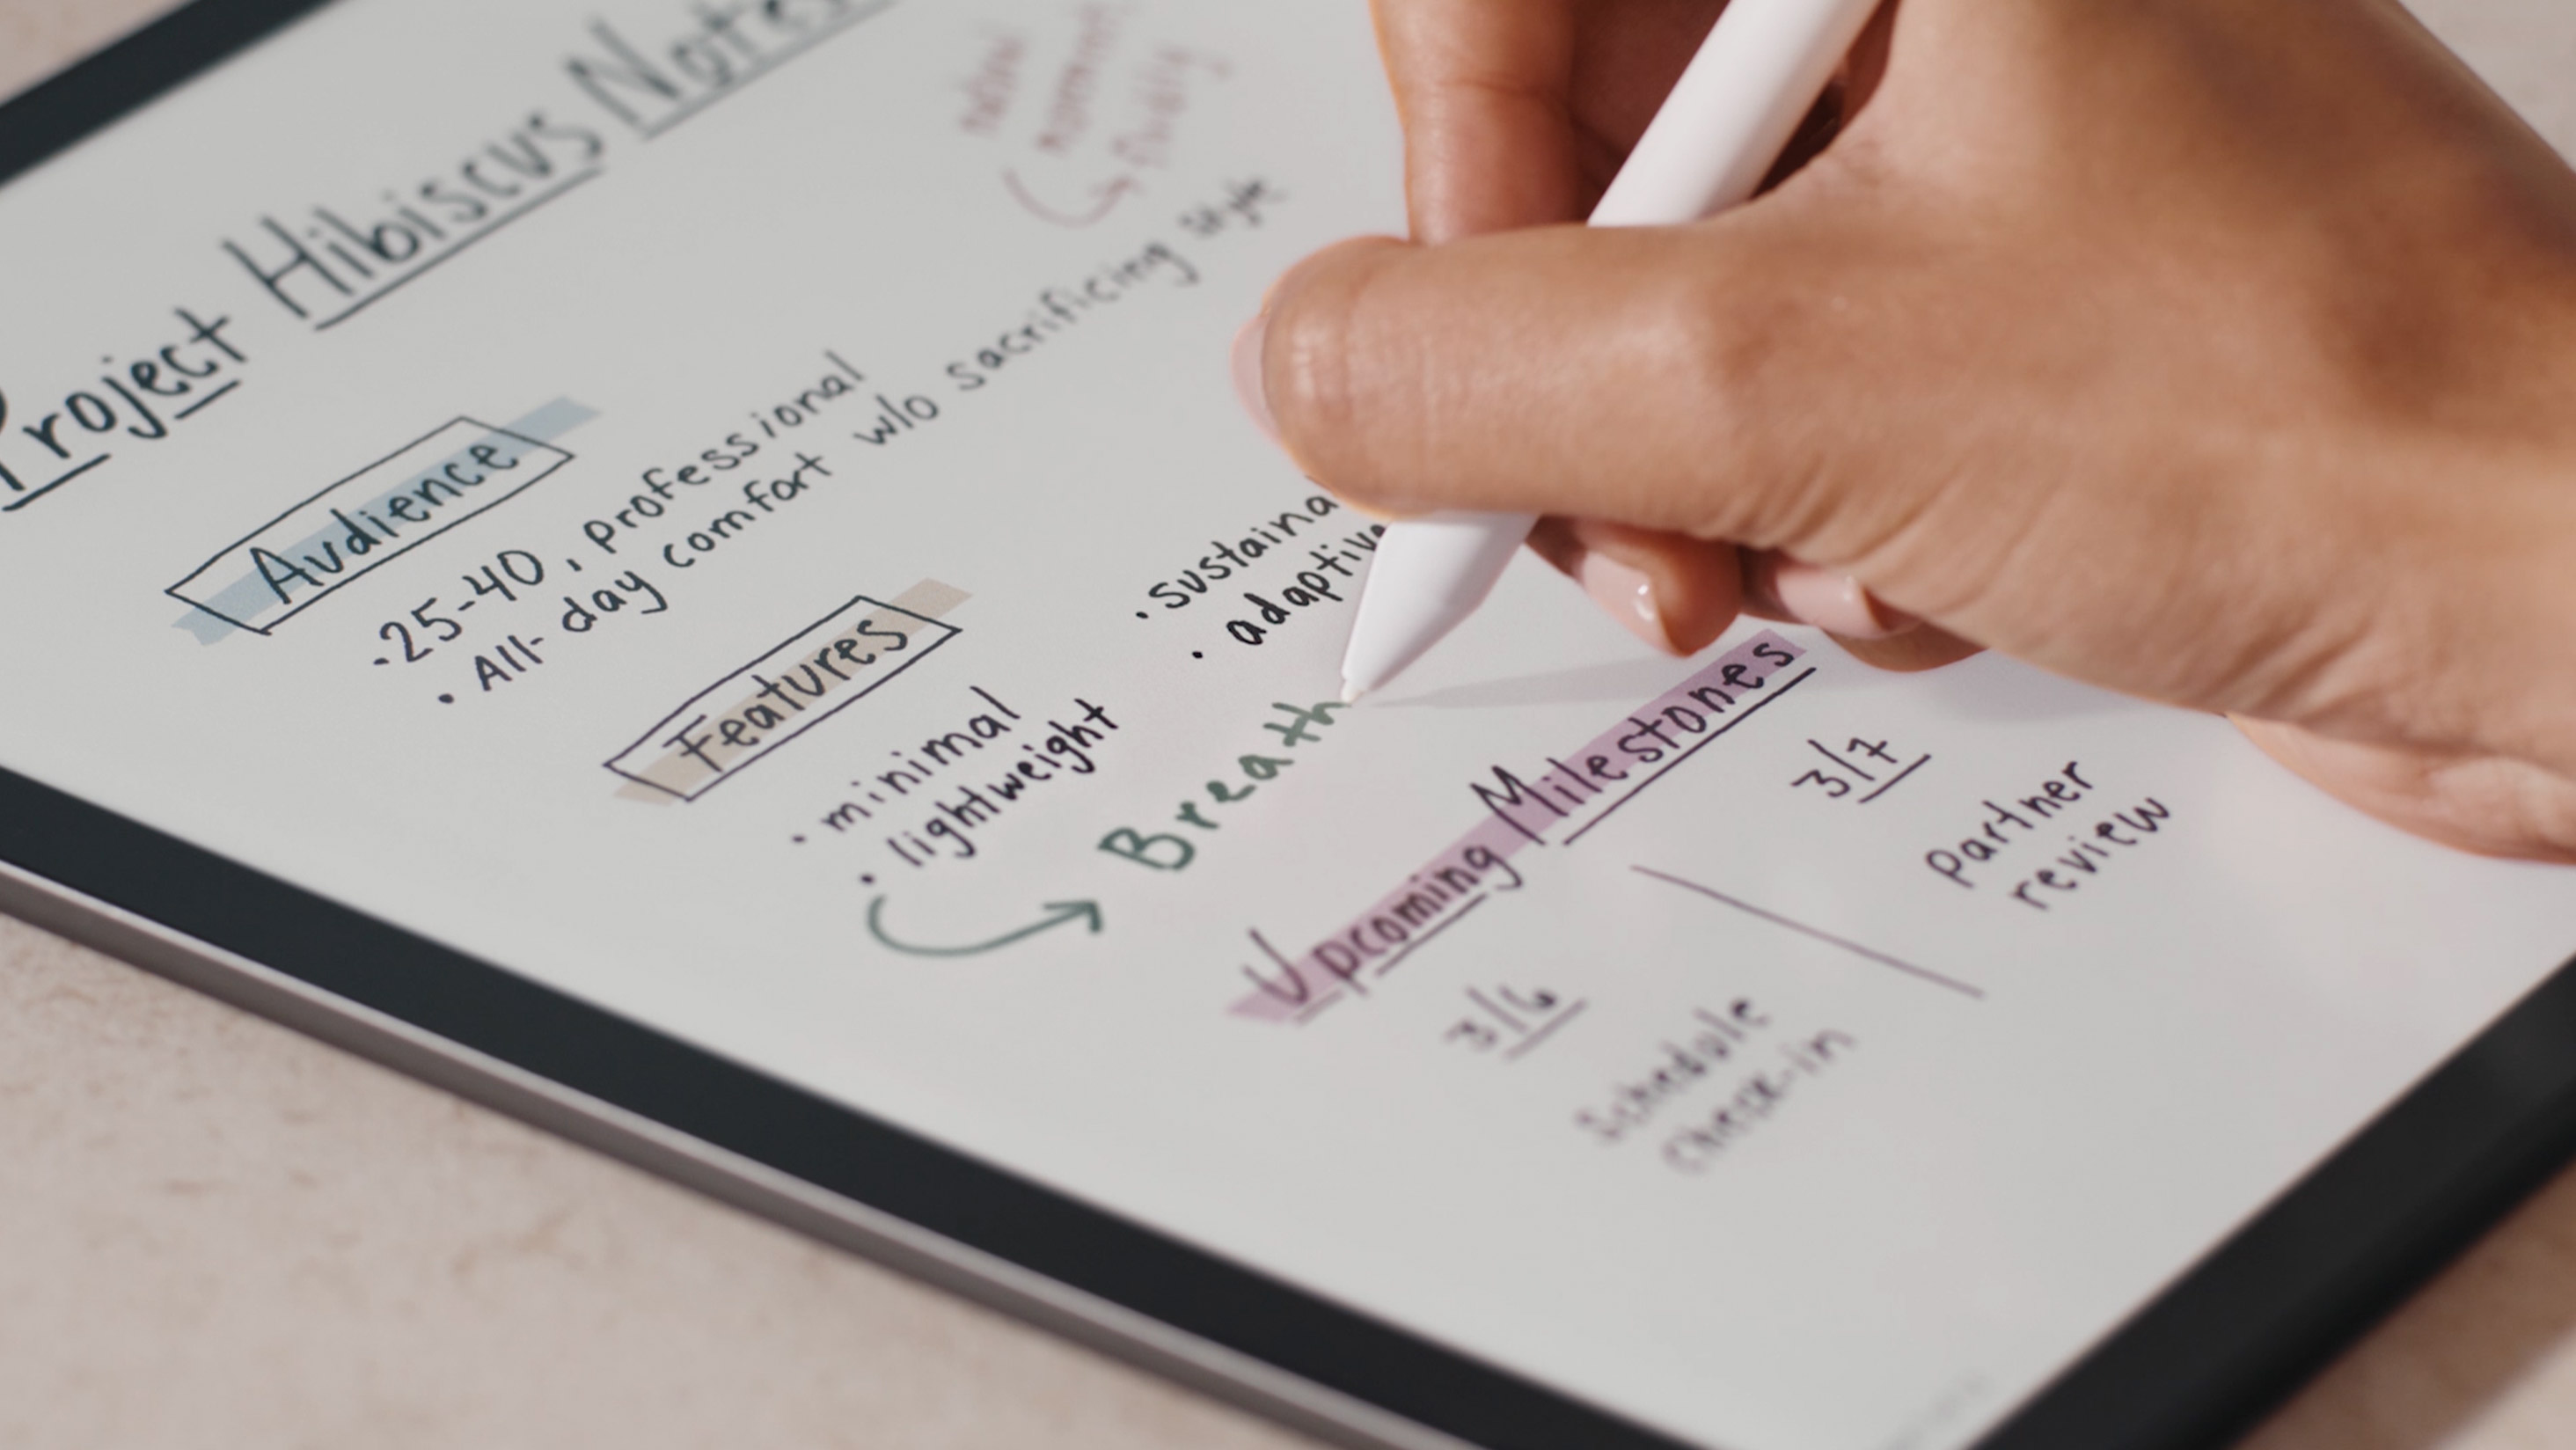 Project Hibiscus Notes
Audience
• 25-40, professional
• All-day comfort w/o sacrificing style
Features
• minimal
• lightweight
• sustaina
• adaptive
Breath
Upcoming Milestones
3/6
Schedule
check-in
3/7
Partner
review